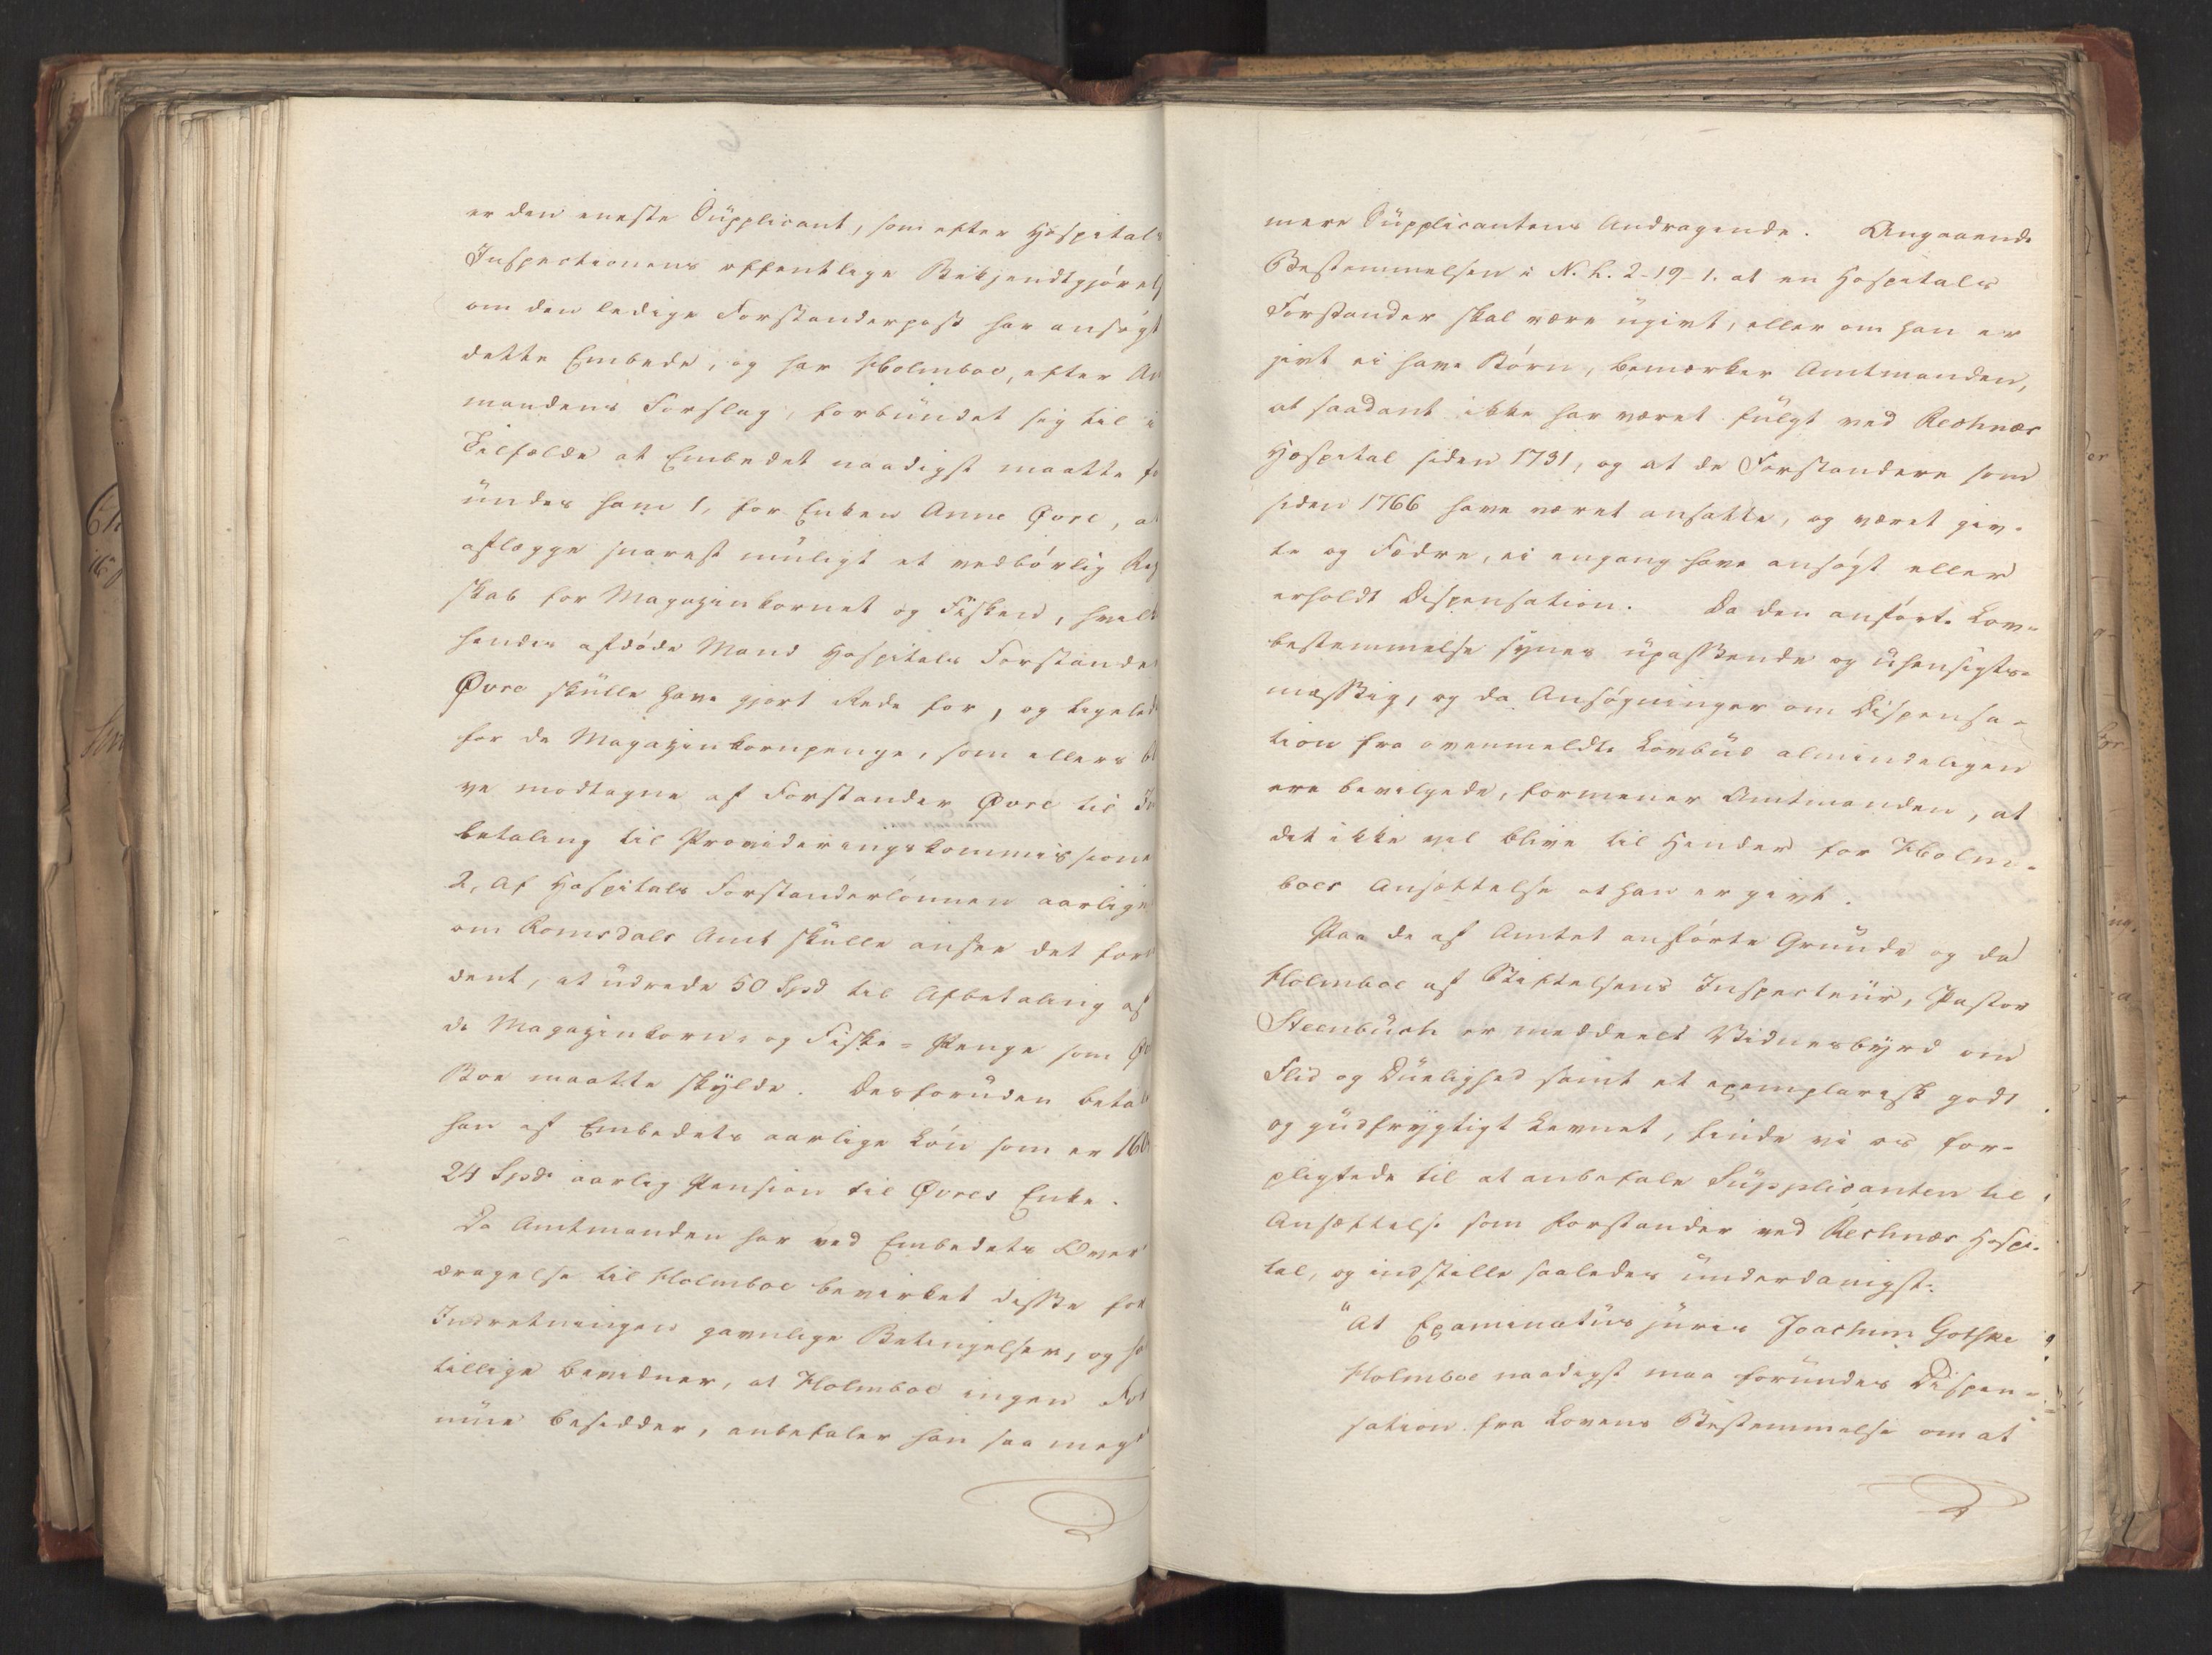 er den eneste Supplicant, som efter Hospitals
Inspectionens offentlige Bekjendtgjørels
om den ledige Forstanderpost har ansøgt
dette Embede, og har Holmboe, efter Am
mandens Forslag, forbundet sig til i
Tilfælde at Embedet naadigst maatte fo
undes ham 1, for Enken Anne Øvre, at
aflægge snarest muligt et vedbørlig Reg
skab for Magazinkornet og Fisken, hvilk
hendes afdøde Mand Hospitals Forstander
Øvre skulle have gjort Rede for, og ligeled
for de Magazinkornpenge, som ellers bl
ve modtagne af Forstander Øvre til In
betaling til Provideringskommissione
2, Af Hospitals Forstanderlønnen aarligen
om Romsdals Amt skulle ansee det forn
dent, at udrede 50 Spd til Afbetaling af
de Magazinkorn- og Fiske-Penge som Øv
Boe maatte skylde. Desforuden betal
han af Embedets aarlige Løn som er 160
24 Spd aarlig Pension til Øvres Enke.
Da Amtmanden har ved Embedets Over
dragelse til Holmboe bevirket disse for
Indretningen gavnlige Betingelser, og so
tillige bevidner, at Holmboe ingen For
mue besidder, anbefaler han saa meget
mere Supplicantens Andragende. Angaaende
Bestemmelsen i N. L. 2-19-1. at en Hospitals
Forstander skal være ugivt, eller om han er
givt ei have Børn, bemærker Amtmanden,
at saadant ikke har været fulgt ved Reshnæs
Hospital siden 1731, og at de Forstandere som
siden 1766 have været ansatte, og været giv-
te og Fædre, ei engang have ansøgt eller
erholdt Dispensation. Da den anførte Lov-
bestemmelse synes upassende og uhensigts-
mæssig, og da Ansøgninger om Dispensa-
tion fra ovenmeldte Lovbud almindeligen
ere bevilgede, formener Amtmanden, at
det ikke vil blive til Hinder for Holm-
boes Ansættelse at han er givt.
Paa de af Amtet anførte Grunde og da
Holmboe af Stiftelsens Inspecteur, Pastor
Steenbuch er meddeelt Vidnesbyrd om
Flid og Duelighed samt et exemplarisk godt
og gudfrygtigt Levnet, finde vi os for-
pligtede til at anbefale Supplicanten til
Ansættelse som Forstander ved Reshnæs Hospi-
tal, og indstille saaledes underdanigst:
"At Examinatus juris Joachim Gotske
Holmboe naadigst maa forundes Dispen-
sation fra Lovens Bestemmelse om at